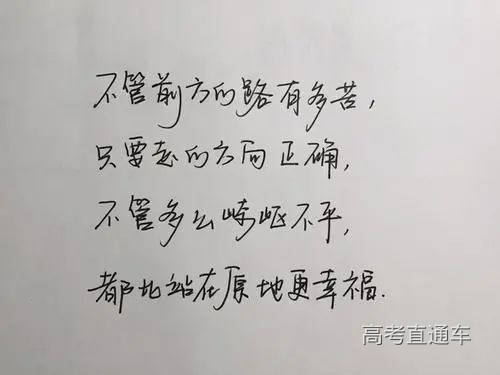 不管前方的路有多苦，
只要走的方向正确，
不管多么崎岖不平，
都比站在原地更幸福.
高考直通车